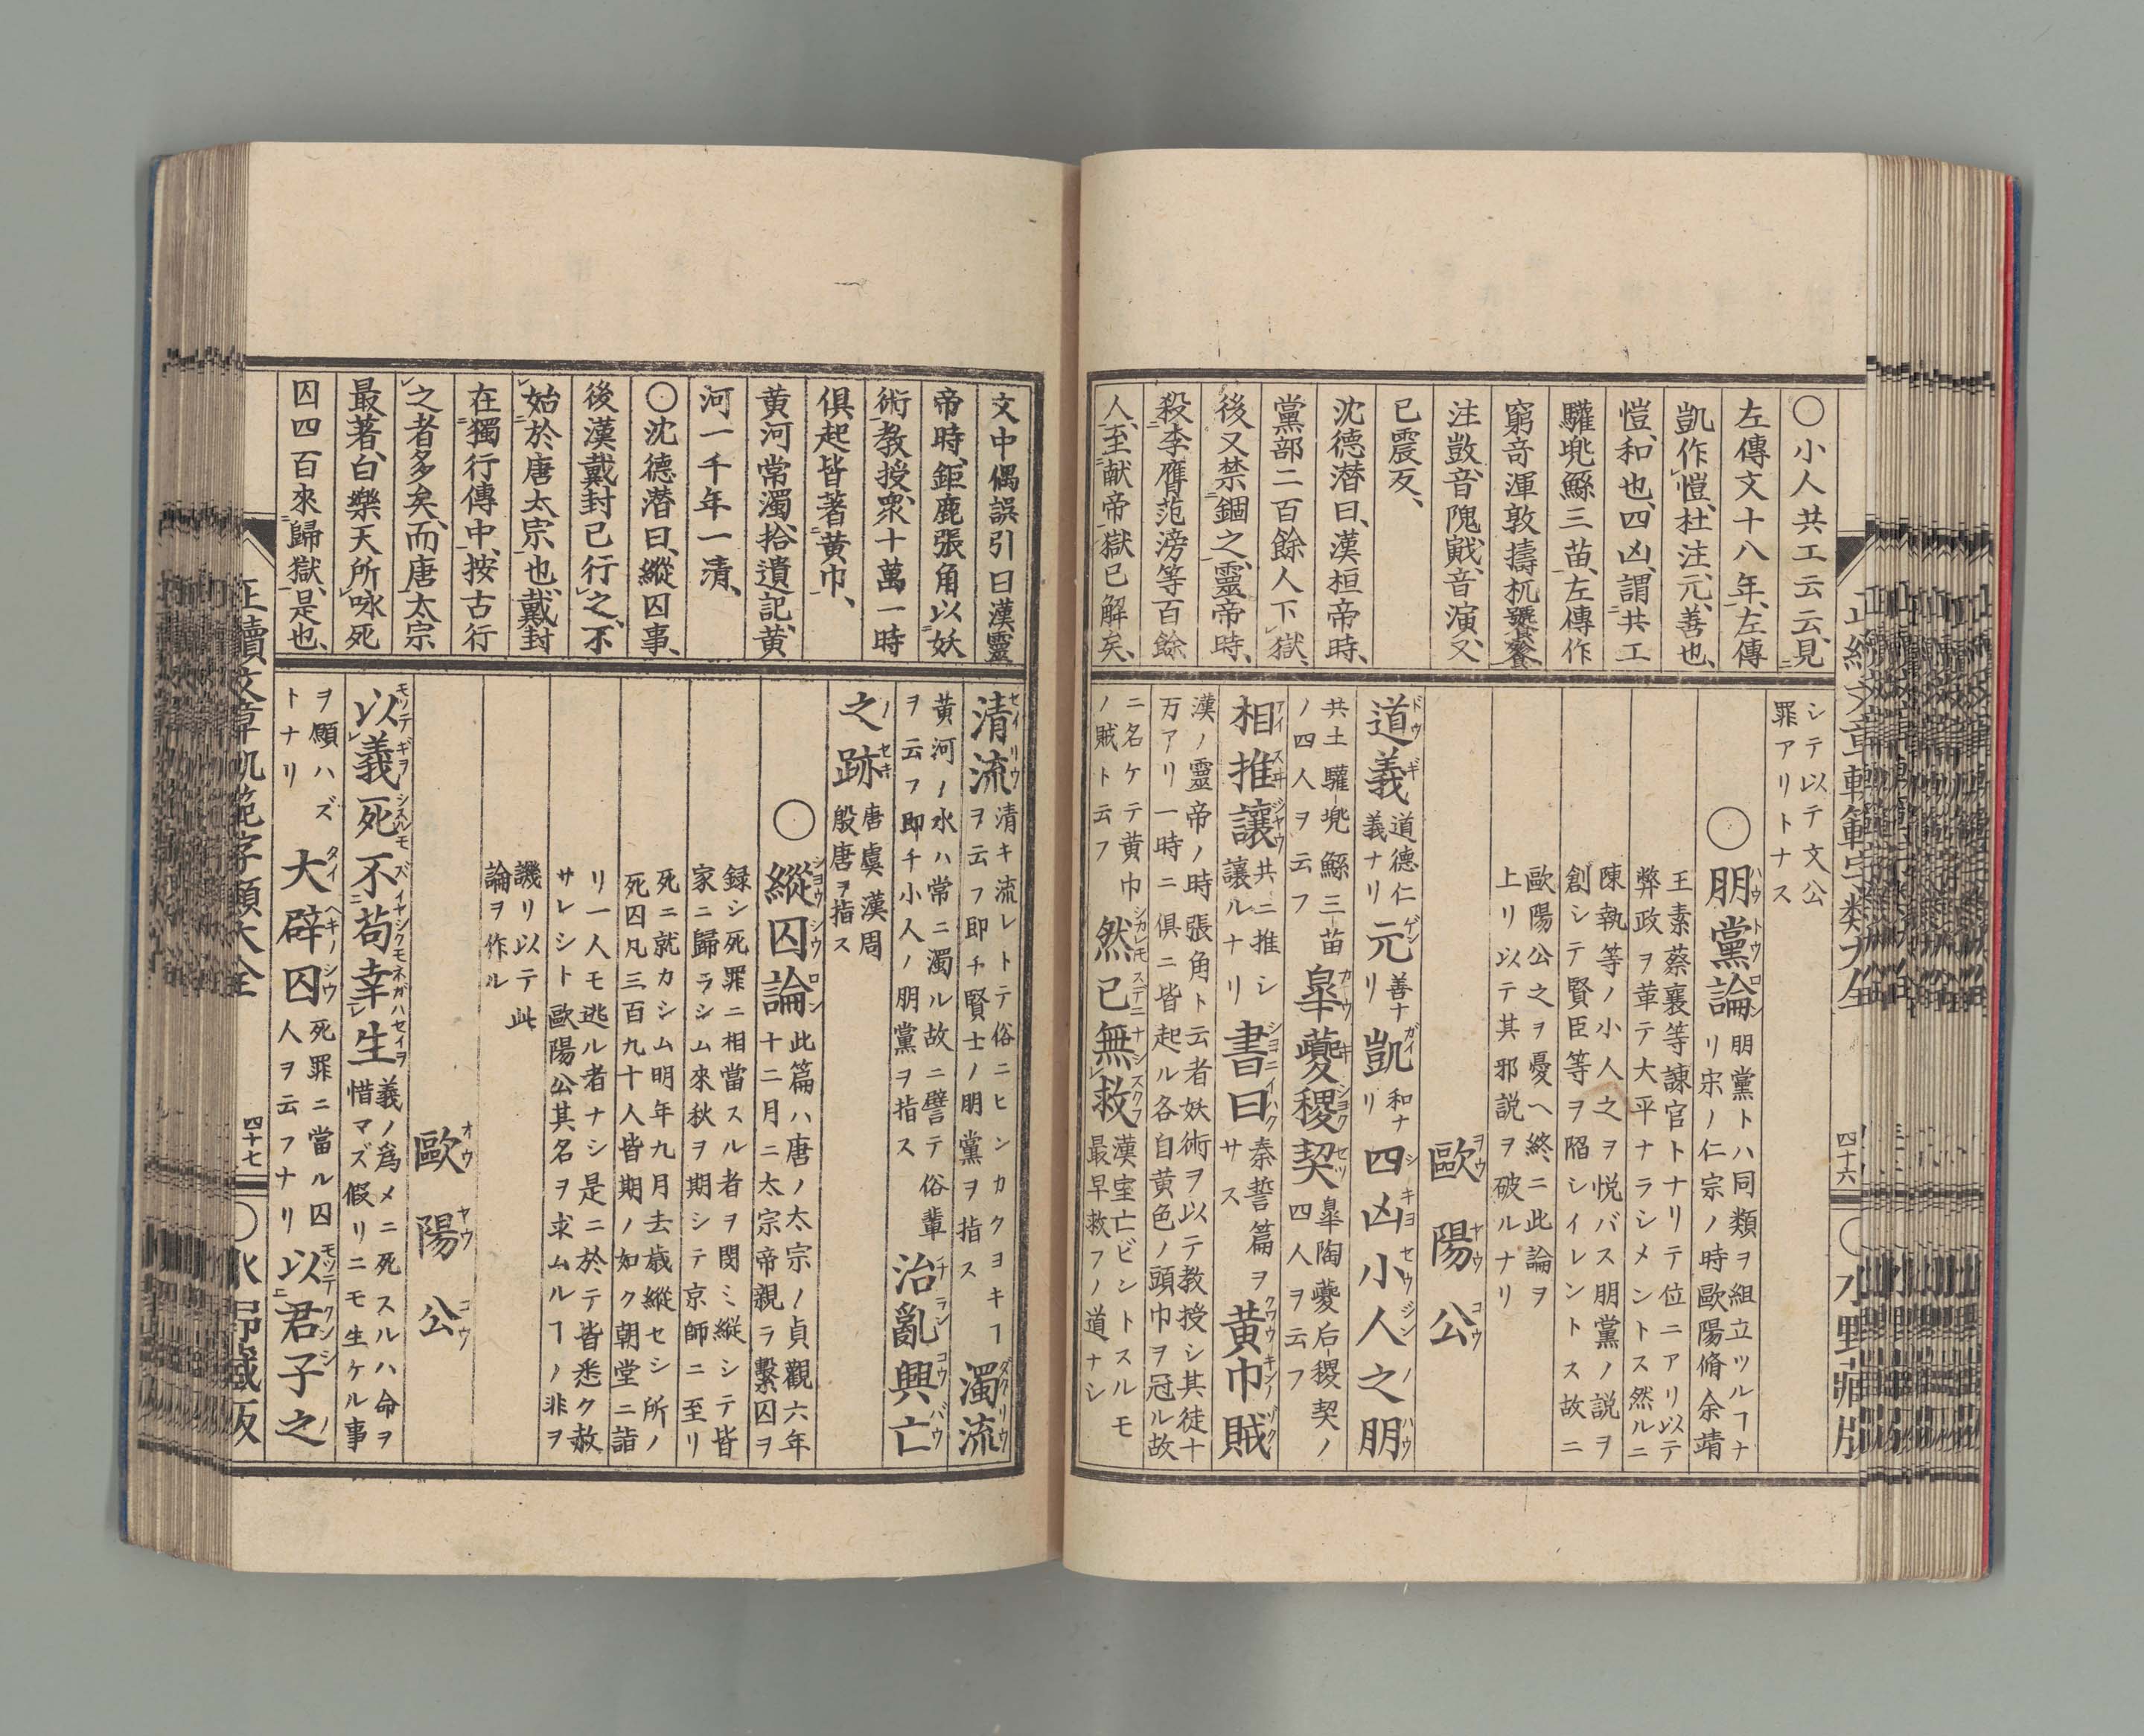 〇小人共工云云、見
左傳文十八年、左傳
凱作愷、杜注、元、善也、
愷、和也、四凶、謂共工
驩兠鯀三苗、左傳作
窮竒渾敦擣杌饕餮
注敳、音隗、戭、音演、又
已震反、
沈德潜曰、漢桓帝時、
黨部二百餘人下獄、
後又禁錮之、靈帝時、
殺李膺范滂等百餘
人、至献帝獄已解矣、
シテ以テ文公
罪アリトナス
〇朋黨論
朋黨トハ同類ヲ組立ツルヿナ
リ宋ノ仁宗ノ時歐陽脩余靖
王素蔡襄等諫官トナリテ位ニアリ以テ
弊政ヲ革テ大平ナラシメントス然ルニ
陳執等ノ小人之ヲ悦バス朋黨ノ説ヲ
創シテ賢臣等ヲ陷シイレントス故ニ
歐陽公之ヲ憂ヘ終ニ此論ヲ
上リ以テ其邪説ヲ破ルナリ
歐陽公
道義 道德仁義ナリ 元 善ナリ 凱 和ナリ 四凶小人之朋
共土驩兠鯀三苗ノ四人ヲ云フ 皐夔稷契 皐陶夔后稷契ノ四人ヲ云フ
相推讓 共ニ推シ讓ルナリ 書曰 秦誓篇ヲサス 黄巾賊
漢ノ靈帝ノ時張角ト云者妖術ヲ以テ教授シ其徒十
万アリ一時ニ俱ニ皆起ル各自黄色ノ頭巾ヲ冠ル故
ニ名ケテ黄巾ノ賊ト云フ 然已無救 漢室亡ビントスルモ最早救フノ道ナシ
四十六
文中偶誤引曰漢靈
帝時、鉅鹿張角以妖
術教授、衆十萬一時
俱起皆著黄巾、
黄河常濁、拾遺記、黄
河一千年一清、
〇沈德潜曰、縱囚事、
後漢戴封已行之、不
始於唐太宗也、戴封
在獨行傳中、按古行
之者多矣、而唐太宗
最著、白樂天所咏死
囚四百來歸獄、是也、
清流 清キ流レトテ俗ニヒンカクヨキヿヲ云フ即チ賢士ノ朋黨ヲ指ス 濁流
黄河ノ水ハ常ニ濁ル故ニ譬テ俗輩ヲ云フ即チ小人ノ朋黨ヲ指ス 治亂興亡
之跡 唐虞漢周殷唐ヲ指ス
〇縱囚論
此篇ハ唐ノ太宗ノ貞觀六年
十二月ニ太宗帝親ラ繫囚ヲ
録シ死罪ニ相當スル者ヲ閔ミ縦シテ皆
家ニ歸ラシム來秋ヲ期シテ京師ニ至リ
死ニ就カシム明年九月去歳縱セシ所ノ
死囚凡三百九十人皆期ノ如ク朝堂ニ詣
リ一人モ逃ル者ナシ是ニ於テ皆悉ク赦
サレシト歐陽公其名ヲ求ムルヿノ非ヲ
譏リ以テ此
論ヲ作ル
歐陽公
以義死不苟幸生 義ノ爲メニ死スルハ命ヲ惜マズ假リニモ生ケル事
ヲ願ハズトナリ 大辟囚 死罪ニ當ル囚人ヲ云フナリ 以君子之
四十七